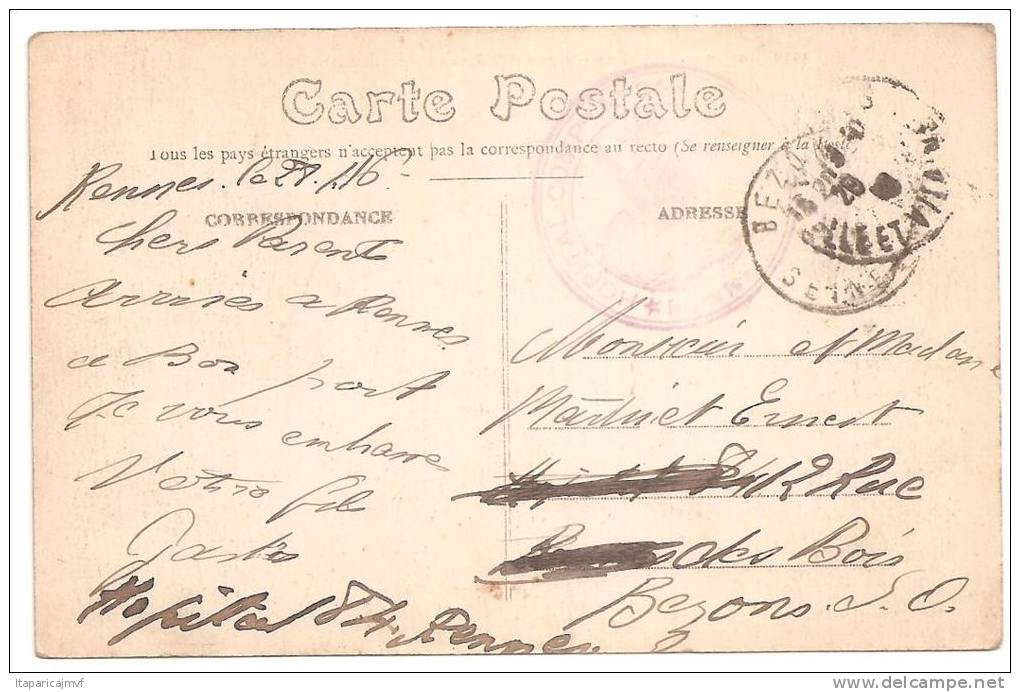 Carte Postale
Tous les pays étrangers n'acceptent pas la correspondance au recto (Se renseigner à la Poste)
Rennes le
CORRESPONDANCE
ADRESSE
Chers Parents
Arrivés a Rennes
a Bon port
Je vous embrasse
Votre fils
Gaston
Hopital 84 Rennes
Monsieur et Madame
Martinet Ernest
12 Rue
des Bois
Bezons S. O.
BEZONS
SEINE ET
HOPITAL
Itaparicajmvf
www.delcampe.net